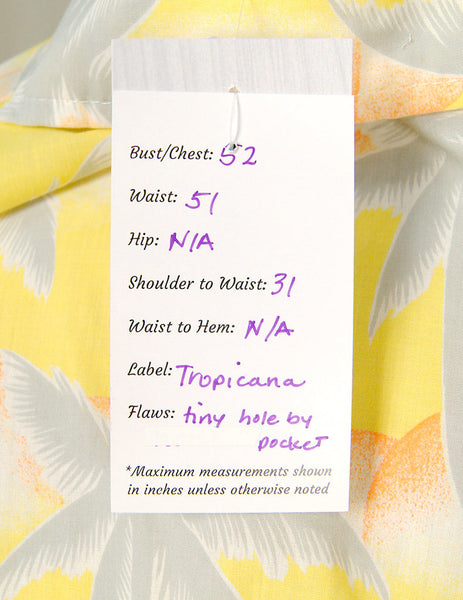 Bust/Chest: 52
Waist: 51
Hip: N/A
Shoulder to Waist: 31
Waist to Hem: N/A
Label: Tropicana
Flaws: tiny hole by
pocket
*Maximum measurements shown
in inches unless otherwise noted